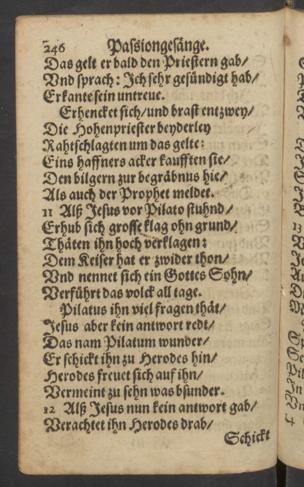 246 Passiongesänge.
Das gelt er bald den Priestern gab/
Vnd sprach: Ich sehr gesündigt hab/
Erkante sein untreue.
Erhencket sich/und brast entzwey/
Die Hohenpriester beyderley
Rahtschlagten um das gelte:
Eins haffners acker kaufften sie/
Den bilgern zur begräbnus hie/
Als auch der Prophet meldet.
11 Alß Jesus vor Pilato stuhnd/
Erhub sich grosse klag ohn grund/
Thäten ihn hoch verklagen:
Dem Keiser hat er zwider thon/
Vnd nennet sich ein Gottes Sohn/
Verführt das volck all tage.
Pilatus ihn viel fragen thät/
Jesus aber kein antwort redt/
Das nam Pilatum wunder/
Er schickt ihn zu Herodes hin/
Herodes freuet sich auf ihn/
Vermeint zu sehn was bsunder.
12 Alß Jesus nun kein antwort gab/
Verachtet ihn Herodes drab/
Schickt